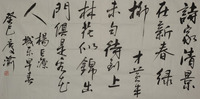 詩家清景
在新春綠
柳才黃半
未勻待到上
林花似錦出
門俱是看花
人
楊巨源
城東早春